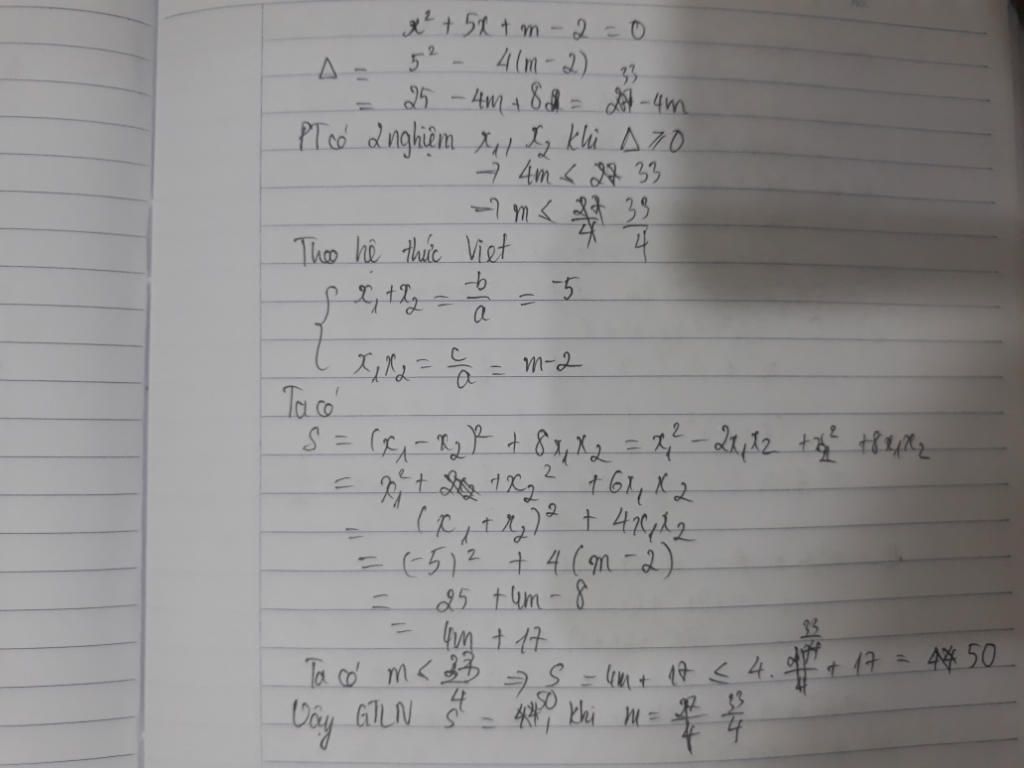 x² + 5x + m - 2 = 0
Δ = 5² - 4(m - 2)
= 25 - 4m + 8 = 33 - 4m
PT có 2 nghiệm x₁, x₂ khi Δ ⩾ 0
→ 4m < 33
→ m < 33/4
Theo hệ thức Viet
{ x₁ + x₂ = -b/a = -5
x₁x₂ = c/a = m - 2
Ta có
S = (x₁ - x₂)² + 8x₁x₂ = x₁² - 2x₁x₂ + x₂² + 8x₁x₂
= x₁² + + x₂² + 6x₁x₂
= (x₁ + x₂)² + 4x₁x₂
= (-5)² + 4(m - 2)
= 25 + 4m - 8
= 4m + 17
Ta có m < 33/4 ⇒ S = 4m + 17 ≤ 4 . 33/4 + 17 = 50
Vậy GTLN S = 50, khi m = 33/4